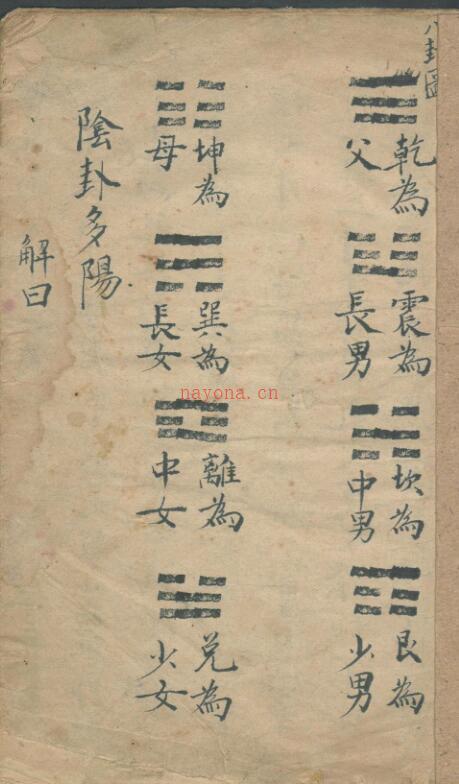 八卦圖
乾為父
震為長男
坎為中男
艮為少男
坤為母
巽為長女
離為中女
兌為少女
陰卦多陽
解曰
nayona.cn